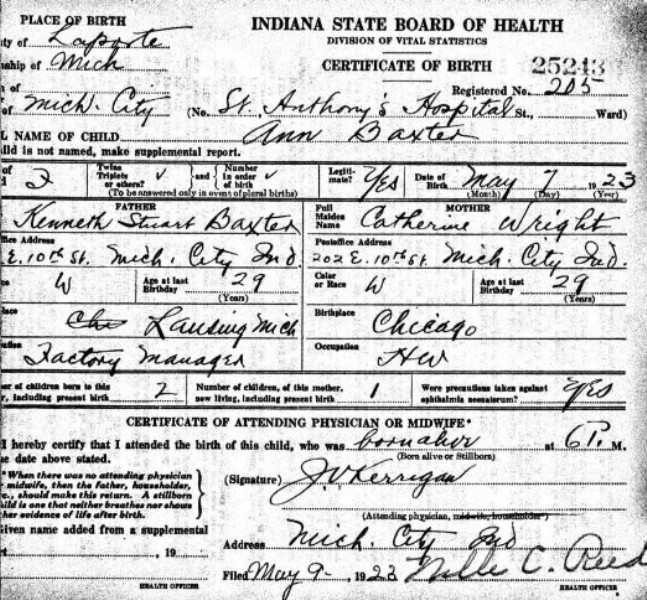 PLACE OF BIRTH
INDIANA STATE BOARD OF HEALTH
ty of Laporte
DIVISION OF VITAL STATISTICS
nship of Mich
CERTIFICATE OF BIRTH
25243
n of
Registered No. 205
of Mich. City (No. St. Anthony's Hospital St., Ward)
L NAME OF CHILD Ann Baxter
ild is not named, make supplemental report.
of
Twins Triplets or others? ✓ and Number in order of birth ✓
(To be answered only in event of plural births)
Legiti-mate? Yes
Date of Birth May 7 1923
(Month) (Day) (Year)
FATHER
Kenneth Stuart Baxter
Full Maiden Name
MOTHER
Catherine Wright
ffice Address
E. 10th St. Mich. City Ind.
Postoffice Address
202 E. 10th St. Mich. City Ind.
ce W
Age at last Birthday 29
(Years)
Color or Race W
Age at last Birthday 29
(Years)
lace Lansing Mich
Birthplace Chicago
ation Factory Manager
Occupation HW
er of children born to this
r, including present birth 2
Number of children, of this mother,
now living, including present birth 1
Were precautions taken against
ophthalmia neonatorum? Yes
CERTIFICATE OF ATTENDING PHYSICIAN OR MIDWIFE*
I hereby certify that I attended the birth of this child, who was born alive at 6 P. M.
(Born alive or Stillborn)
he date above stated.
*When there was no attending physician
midwife, then the father, householder,
c., should make this return. A stillborn
hild is one that neither breathes nor shows
her evidence of life after birth.
(Signature) J V Kerrigan
(Attending physician, midwife, householder*)
Given name added from a supplemental
rt , 19
Address Mich. City Ind
Filed May 9 - , 1923 C. Reed
HEALTH OFFICER
HEALTH OFFICER